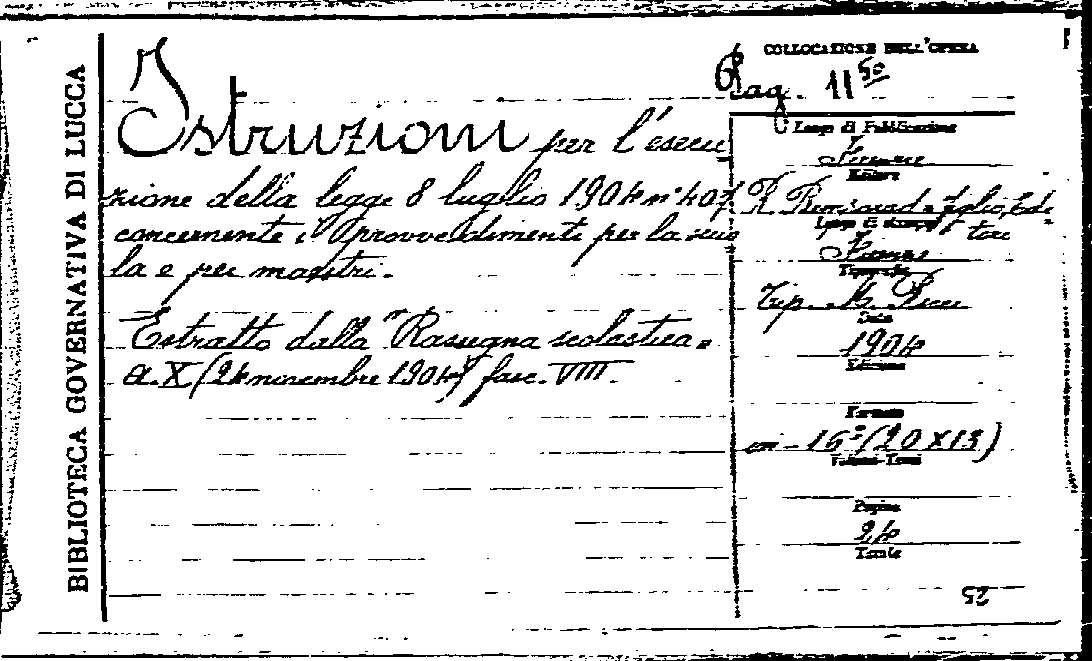 BIBLIOTECA GOVERNATIVA DI LUCCA
Istruzioni per l'esecu
zione della legge 8 luglio 1904 n° 407
concernente i provvedimenti per la scuo
la e per maestri.
Estratto dalla "Rassegna scolastica"
a. X (24 novembre 1904) fasc. VIII.
COLLOCAZIONE DELL'OPERA
Pag. 11 50
Luogo di Pubblicazione
Firenze
Editore
R. Bemporad e figlio, Edi
tore
Luogo di stampa
Firenze
Tipografia
Tip.
Data
1904
Edizione
Formato
in-16° (20 X 13)
Volumi-Tomi
Pagine
24
Tavole
25